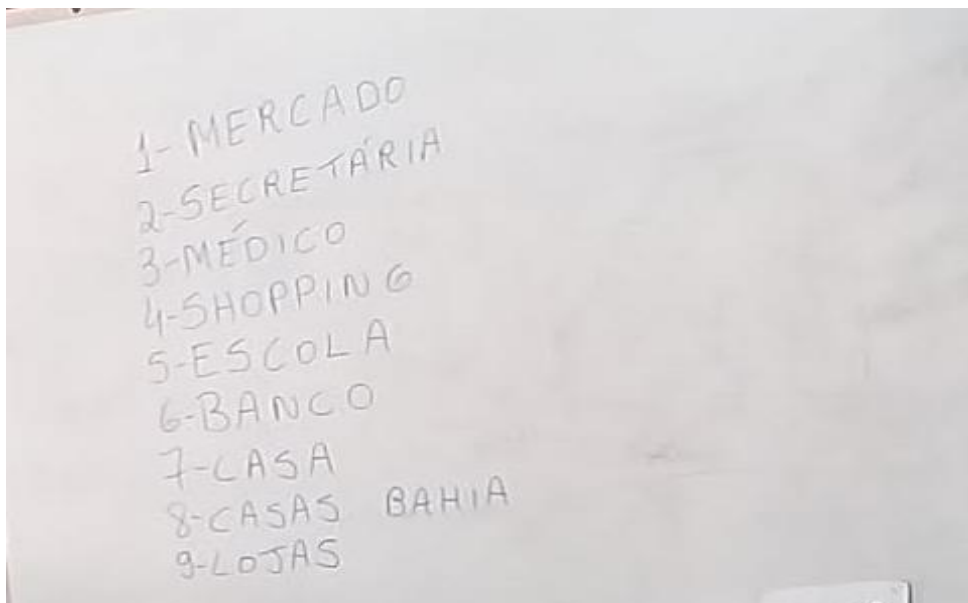 1-MERCADO
2-SECRETÁRIA
3-MÉDICO
4-SHOPPING
5-ESCOLA
6-BANCO
7-CASA
8-CASAS BAHIA
9-LOJAS